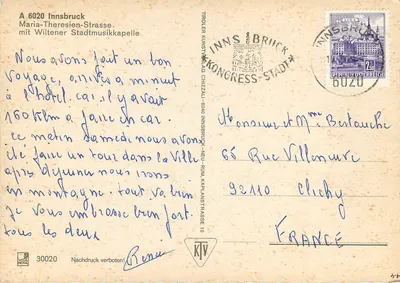 A 6020 Innsbruck
Maria-Theresien-Strasse
mit Wiltener Stadtmusikkapelle
Nous avons fait un bon
voyage, arrivés a minuit
à l'hotel. car il y avait
160 klm a faire en car.
ce matin samedi nous avons
été faire un tour dans la Ville
après déjeuner nous irons
en montagne. tout va bien
je vous embrasse bien fort.
tous les deux
30020
Nachdruck verboten!
KTV
INNSBRUCK
KONGRESS-STADT
INNSBRUCK
6020
REPUBLIK ÖSTERREICH
Monsieur et Mme
65 Rue Villeneuve
92110 Clichy
FRANCE